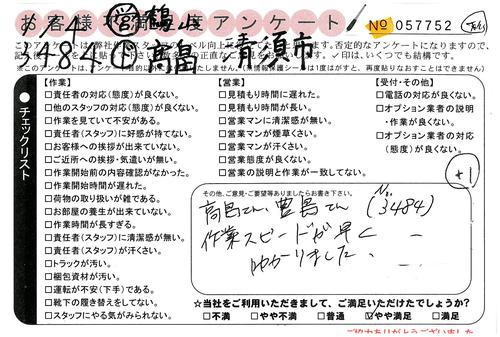 お客様満足度アンケート
No 057752
1/4 営 鶴山
3484 高島 清須市
✓印は、いくつでも結構です。
※このアンケートは、無記名
チェックリスト
【作業】
□責任者の対応(態度)が良くない。
□他のスタッフの対応(態度)が良くない。
□作業を見ていて不安がある。
□責任者(スタッフ)に好感が持てない。
□お客様への挨拶が出来ていない。
□ご近所への挨拶・気遣いが無い。
□作業開始前の内容確認がなかった。
□作業開始時間が遅れた。
□荷物の取り扱いが雑である。
□お部屋の養生が出来ていない。
□作業時間が長すぎる。
□責任者(スタッフ)に清潔感が無い。
□責任者(スタッフ)が汗くさい。
□トラックが汚い。
□梱包資材が汚い。
□運転が不安(下手)である。
□靴下の履き替えをしてない。
□スタッフにやる気がみられない。
【営業】
□見積もり時間に遅れた。
□見積もり時間が長い。
□営業マンに清潔感が無い。
□営業マンが煙草くさい。
□営業マンが汗くさい。
□営業態度が良くない。
□営業の説明と作業が一致してない。
【受付・その他】
□電話の対応が良くない。
□オプション業者の説明
・作業が良くない。
□オプション業者の対応
(態度)が良くない。
+1
その他、ご意見・ご要望等ありましたらお書き下さい。
高島さん、豊島さん
No.(3484)
作業スピードが早く
助かりました、
☆当社をご利用いただきまして、ご満足いただけたでしょうか?
□不満 □やや不満 □普通 ☑やや満足 □満足
ご協力ありがとうございました